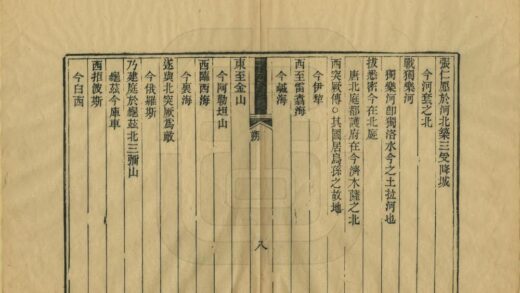 張仁愿於河北築三受降城
今河套之北
戰獨樂河
獨樂河卽獨洛水今之土拉河也
拔悉密今在北庭
唐北庭都護府在今濟木薩之北
西突厥傳○其國居烏孫之故地
今伊犂
西至雷翥海
今鹹海
八
東至金山
今阿勒坦山
西臨西海
今裏海
遂與北突厥爲敵
今俄羅斯
乃建庭於龜茲北三彌山
龜茲今庫車
西拒波斯
今白西